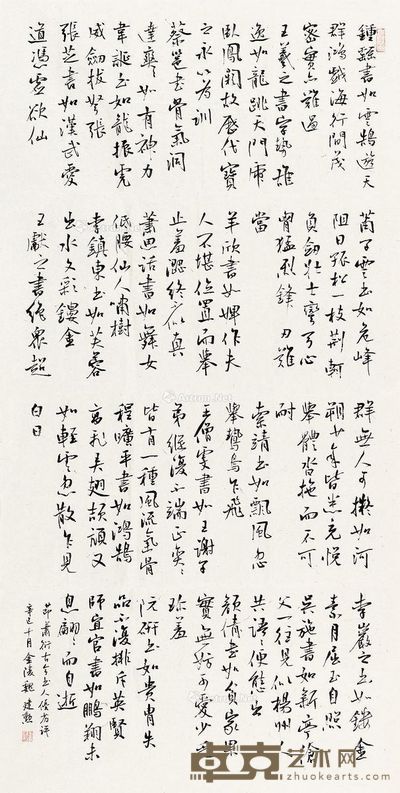 鍾繇書如雲鵠遊天
群鴻戲海行間茂
密實亦難過
王羲之書字勢雄
逸如龍跳天門虎
臥鳳闕故歷代寶
之永以為訓
蔡邕書骨氣洞
達爽爽如有神力
韋誕書如龍振虎
威劍拔弩張
張芝書如漢武愛
道憑虛欲仙
蕭子雲書如危峰
阻日孤松一枝荊軻
負劍壯士彎弓心
胸猛烈鋒刃難
當
羊欣書如婢作夫
人不堪位置而舉
止羞澀終不似真
蕭思話書如舞女
低腰仙人嘯樹
李鎮東書如芙蓉
出水文彩鏤金
王獻之書絕眾超
群無人可擬如河
朔少年皆悉充悅
舉體沓拖而不可
耐
索靖書如飄風忽
舉鷙鳥乍飛
王僧虔書如王謝子
弟縱復不端正奕奕
皆有一種風流氣骨
程曠平書如鴻鵠
高飛弄翅頡頏又
如輕雲忽散乍見
白日
李巖之書如鏤金
素月屈玉自照
吳施書如新亭傖
父一往見似楊州人
共語便態出
顏倩書如貧家果
實無妨可愛少乏
珍羞
阮研書如貴胄失
品不復排斥英賢
師宜官書如鵬翔未
息翩翩而自逝
節蕭衍古今書人優劣評
辛巳十月金陵魏建
卓克艺术网
zhuokearts.com